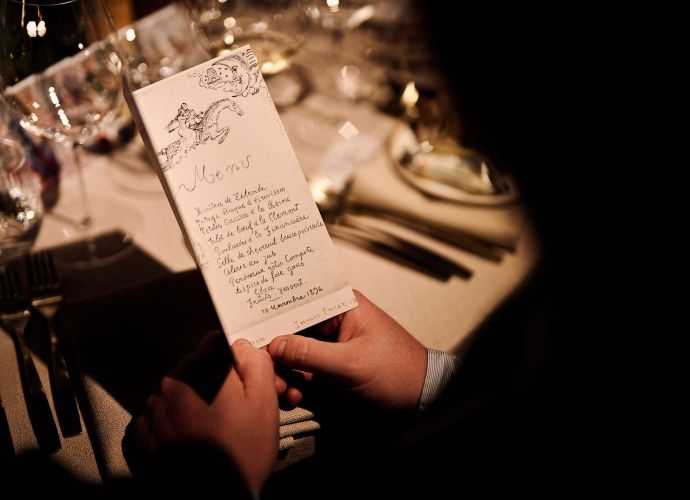 Menu
Huîtres de Zélande
Potage Bisque d'écrevisses
Petites Caisses à la Reine
Filet de boeuf à la Clamart
Poulardes à la Financière
Selle de chevreuil Sauce poivrade
Céleris au jus
Perdreaux rôtis Compote
Aspics de foie gras
Glace
Fruits Dessert
10 Novembre 1896
James Ensor